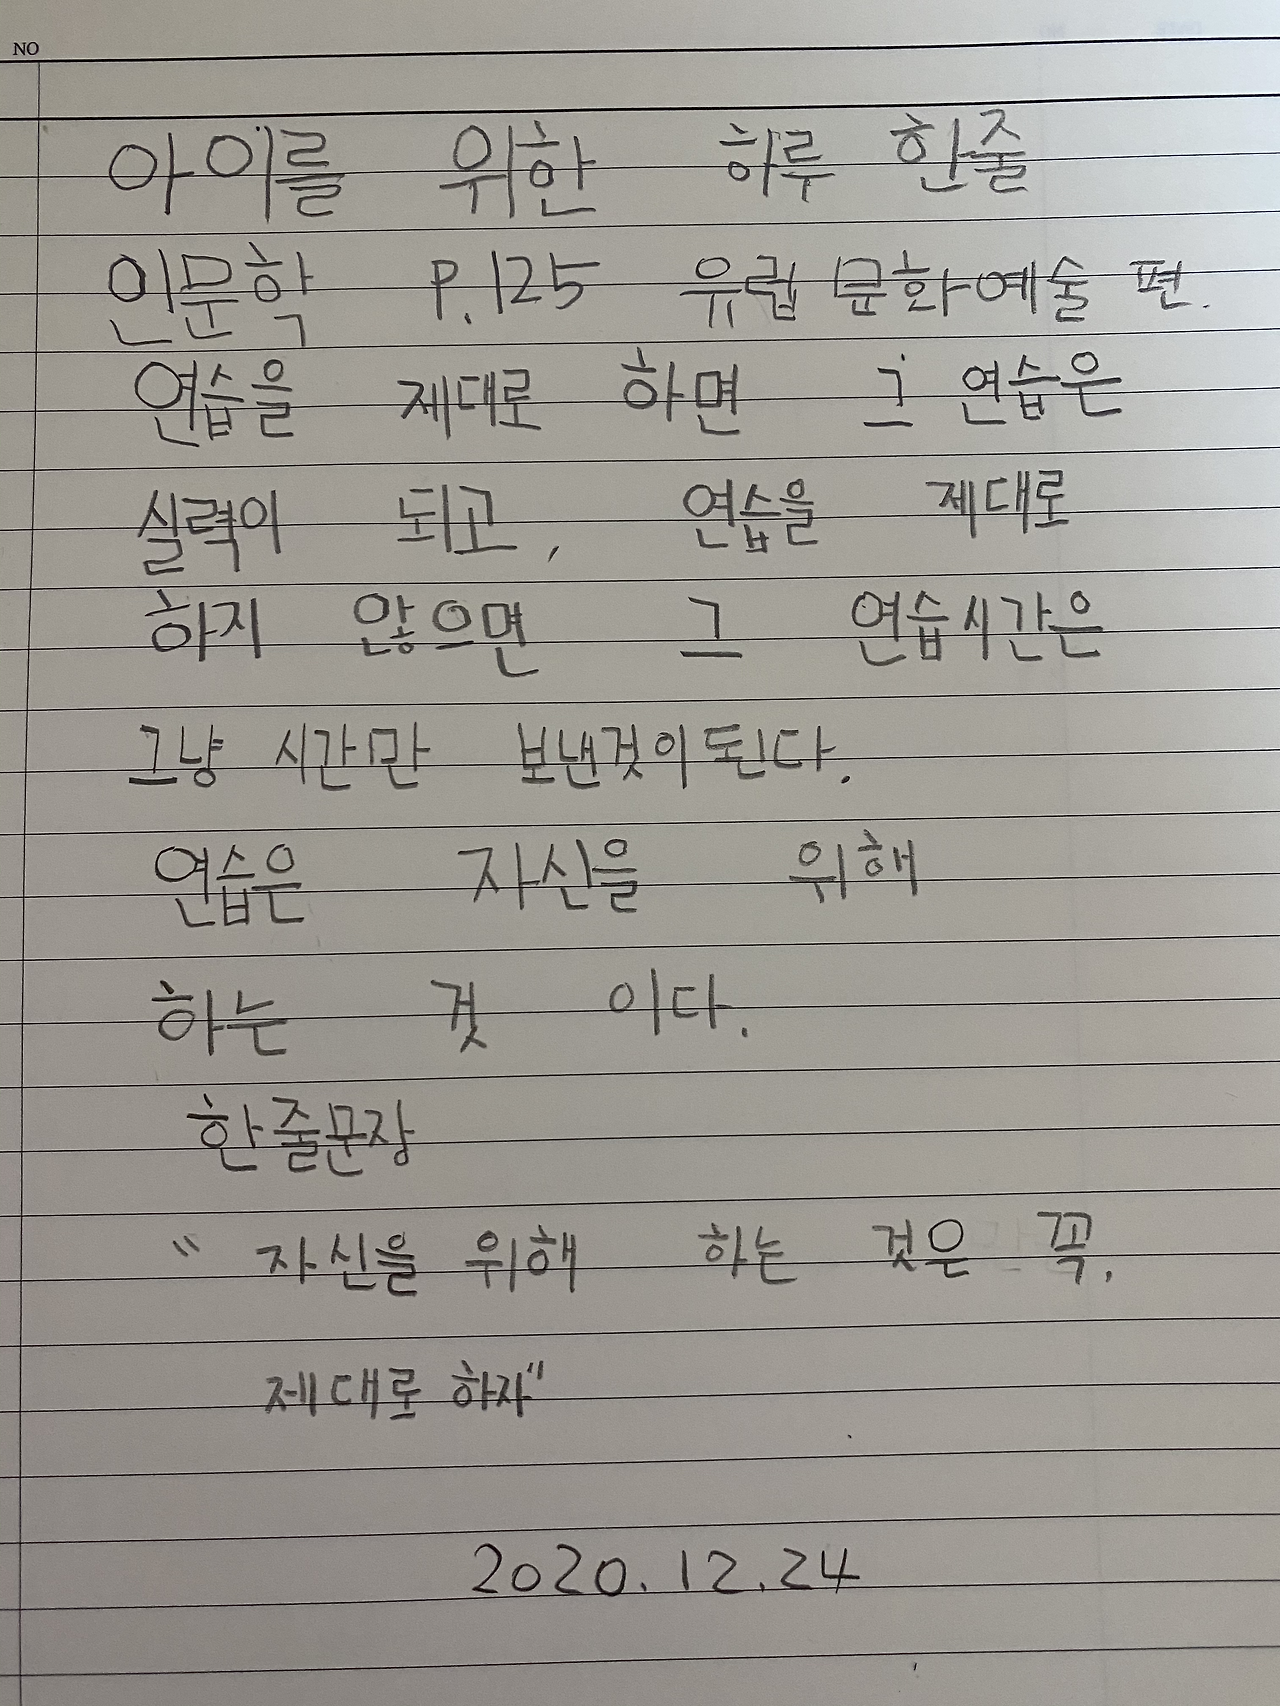 NO
아이를 위한 하루 한줄
인문학 P.125 유럽 문화예술 편.
연습을 제대로 하면 그 연습은
실력이 되고, 연습을 제대로
하지 않으면 그 연습시간은
그냥 시간만 보낸것이된다.
연습은 자신을 위해
하는 것 이다.
한줄문장
" 자신을 위해 하는 것은 꼭,
제대로 하자"
2020.12.24